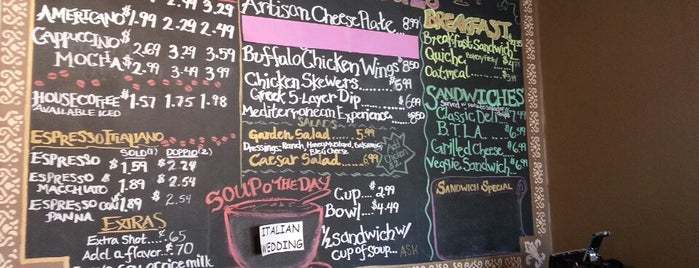 AMERICANO $1.99 2.49 2.99
CAPPUCCINO $2.69 3.29 3.59
MOCHA $2.99 3.49 3.99
HOUSE COFFEE $1.57 1.75 1.98
AVAILABLE ICED
ESPRESSO ITALIANO
SOLO(1) DOPPIO(2)
ESPRESSO $1.59 $2.24
ESPRESSO MACCHIATO $1.89 $2.54
ESPRESSO CON PANNA $1.89 $2.54
EXTRAS
Extra Shot....65
Add a flavor...$.70
rice milk
Artisan Cheese Plate... 8.99
Buffalo Chicken Wings $8.50
Chicken Skewers.... $6.99
Greek 5-Layer Dip... $6.99
Mediterranean Experience... $8.99
SALADS
Garden Salad.... 5.99
Dressings: Ranch, Honey Mustard, Balsamic, Bleu Cheese
Caesar Salad.... 6.99
Add Chicken
SOUP O THE DAY
ITALIAN
WEDDING
Cup... $2.99
Bowl... $4.49
1/2 sandwich w/
Cup of soup... ASK
BREAKFAST
Breakfast Sandwich
Quiche
Oatmeal...
SANDWICHES
Classic Deli
B.T.L.A. $6.99
Grilled Cheese $6.99
Veggie Sandwich $6.99
SANDWICH SPECIAL